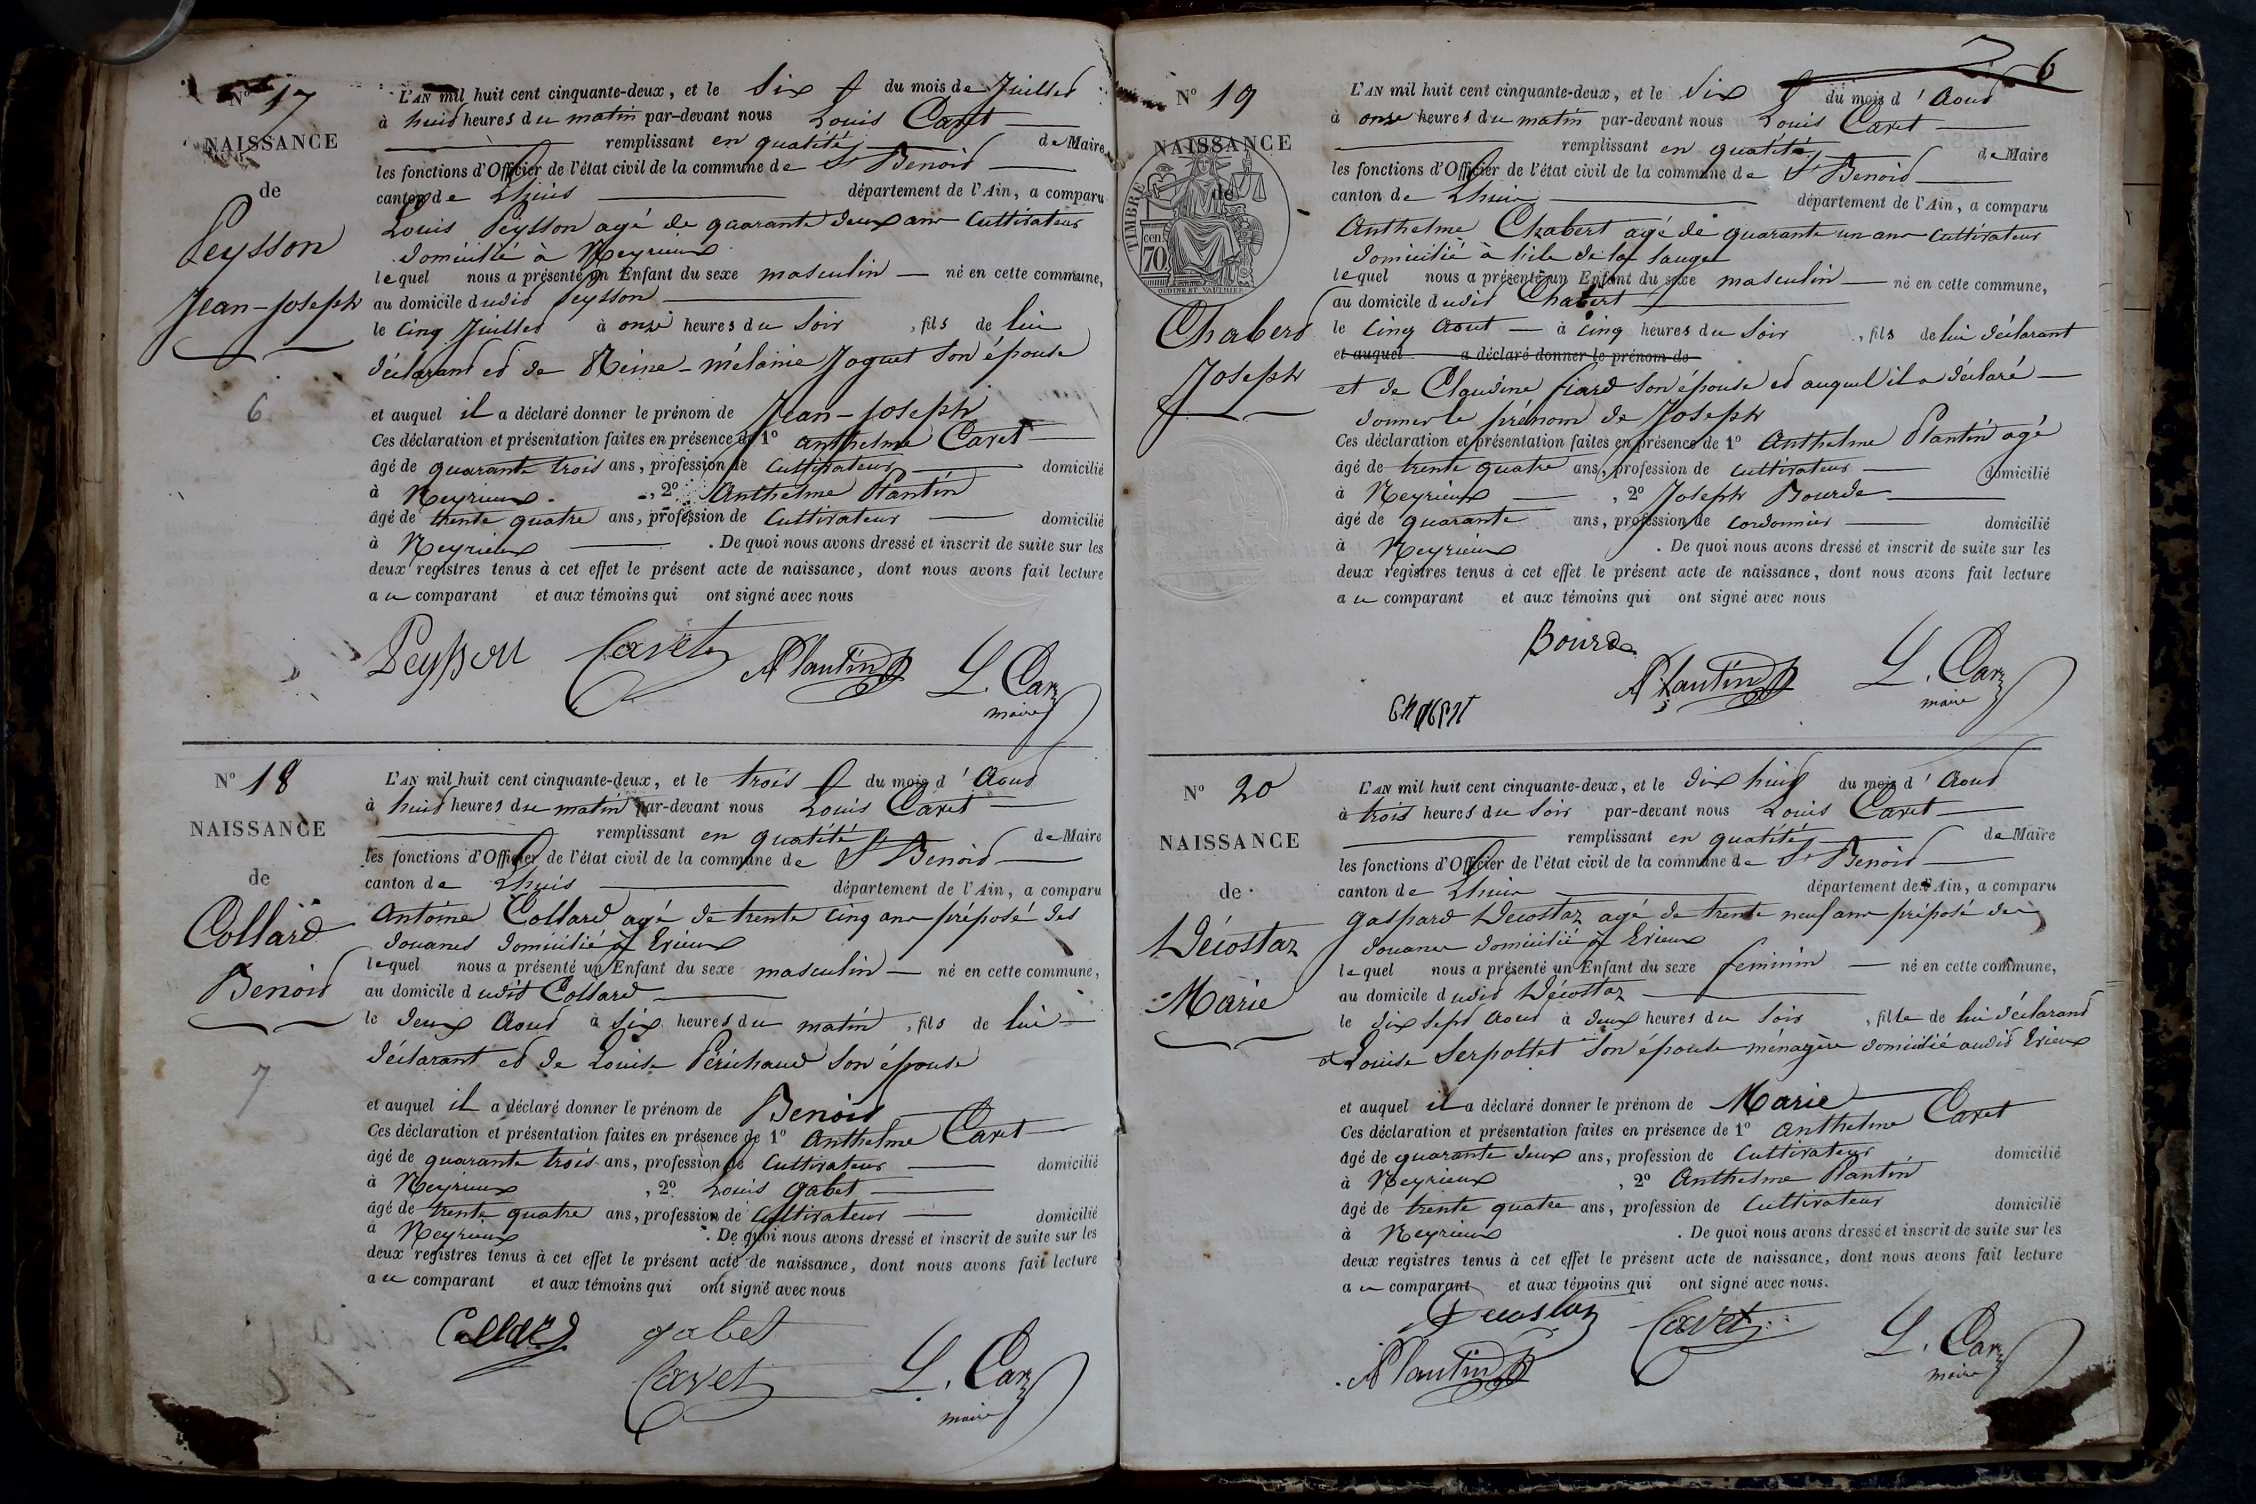 N° 17
NAISSANCE
de
Peysson
Jean-Joseph
6
L'AN mil huit cent cinquante-deux, et le Six du mois de Juillet
à huit heures du matin par-devant nous Louis Cavet
remplissant en qualité de Maire
les fonctions d'Officier de l'état civil de la commune de St Benoit
canton de Lhuis département de l'Ain, a comparu
Louis Peysson agé de quarante deux ans Cultivateur
domicilié à Neyrieux
lequel nous a présenté un Enfant du sexe masculin né en cette commune,
au domicile dudit Peysson
le cinq Juillet à onze heures du Soir, fils de lui
déclarant et de Reine-mélanie Joguet son épouse
et auquel il a déclaré donner le prénom de Jean-Joseph
Ces déclaration et présentation faites en présence de 1° Anthelme Cavet
âgé de quarante trois ans, profession de Cultivateur domicilié
à Neyrieux, 2° Anthelme Plantin
âgé de trente quatre ans, profession de Cultivateur domicilié
à Neyrieux. De quoi nous avons dressé et inscrit de suite sur les
deux registres tenus à cet effet le présent acte de naissance, dont nous avons fait lecture
au comparant et aux témoins qui ont signé avec nous
Peysson Cavet APlantin L. Car
maire
N° 18
NAISSANCE
de
Collard
Benoit
7
L'AN mil huit cent cinquante-deux, et le trois du mois d'Aout
à huit heures du matin par-devant nous Louis Cavet
remplissant en qualité de Maire
les fonctions d'Officier de l'état civil de la commune de St Benoit
canton de Lhuis département de l'Ain, a comparu
Antoine Collard agé de trente cinq ans préposé des
douanes domicilié à Evieux
lequel nous a présenté un Enfant du sexe masculin né en cette commune,
au domicile dudit Collard
le deux Aout à Six heures du matin, fils de lui
déclarant et de Louise Périchaud son épouse
et auquel il a déclaré donner le prénom de Benoit
Ces déclaration et présentation faites en présence de 1° Anthelme Cavet
âgé de quarante trois ans, profession de Cultivateur domicilié
à Neyrieux, 2° Louis Gabet
âgé de trente quatre ans, profession de Cultivateur domicilié
à Neyrieux. De quoi nous avons dressé et inscrit de suite sur les
deux registres tenus à cet effet le présent acte de naissance, dont nous avons fait lecture
au comparant et aux témoins qui ont signé avec nous
Collard gabet
Cavet L. Car
maire
6
N° 19
NAISSANCE
de
TIMBRE
cen.
70
OUDINE ET VAUTHIER
Chabert
Joseph
L'AN mil huit cent cinquante-deux, et le Six du mois d'Aout
à onze heures du matin par-devant nous Louis Cavet
remplissant en qualité de Maire
les fonctions d'Officier de l'état civil de la commune de St Benoit
canton de Lhuis département de l'Ain, a comparu
Anthelme Chabert agé de quarante un ans Cultivateur
domicilié à l'ile de la Sauge
lequel nous a présenté un Enfant du sexe masculin né en cette commune,
au domicile dudit Chabert
le Cinq Aout à Cinq heures du Soir, fils de lui déclarant
et auquel a déclaré donner le prénom de
et de Claudine fiard son épouse et auquel il a déclaré
donner le prénom de Joseph
Ces déclaration et présentation faites en présence de 1° Anthelme Plantin agé
âgé de trente quatre ans, profession de Cultivateur domicilié
à Neyrieux, 2° Joseph Bourde
âgé de quarante ans, profession de cordonnier domicilié
à Neyrieux. De quoi nous avons dressé et inscrit de suite sur les
deux registres tenus à cet effet le présent acte de naissance, dont nous avons fait lecture
au comparant et aux témoins qui ont signé avec nous
Bourde
APlantin L. Car
maire
Chabert
N° 20
NAISSANCE
de
Décostaz
Marie
L'AN mil huit cent cinquante-deux, et le dix huit du mois d'Aout
à trois heures du Soir par-devant nous Louis Cavet
remplissant en qualité de Maire
les fonctions d'Officier de l'état civil de la commune de St Benoit
canton de Lhuis département de l'Ain, a comparu
gaspard Decostaz agé de trente neuf ans préposé des
douanes domicilié à Evieux
lequel nous a présenté un Enfant du sexe feminin né en cette commune,
au domicile dudit Décostaz
le dix Sept Aout à deux heures du Soir, fille de lui déclarant
et Louise Serpollet son épouse ménagère domicilié audit Evieux
et auquel il a déclaré donner le prénom de Marie
Ces déclaration et présentation faites en présence de 1° Anthelme Cavet
âgé de quarante deux ans, profession de Cultivateur domicilié
à Neyrieux, 2° Anthelme Plantin
âgé de trente quatre ans, profession de Cultivateur domicilié
à Neyrieux. De quoi nous avons dressé et inscrit de suite sur les
deux registres tenus à cet effet le présent acte de naissance, dont nous avons fait lecture
au comparant et aux témoins qui ont signé avec nous.
Decostaz Cavet L. Car
APlantin maire